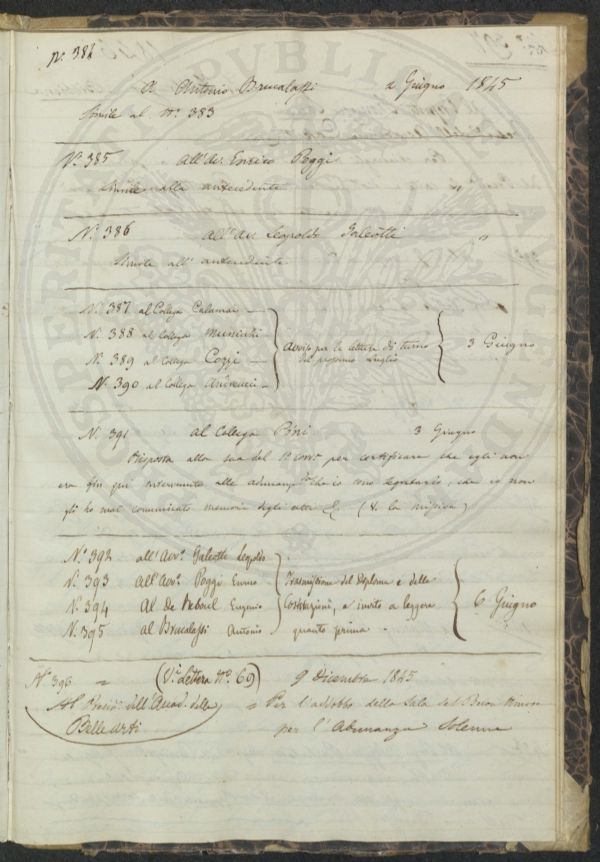 N.º 384
A Antonio Brucalassi 2 Giugno 1845
Simile al Nº 383
N.º 385 all'Av. Enrico Poggi
Simile alla antecedente "
N.º 386 all'Av. Leopoldo Galeotti "
Simile all' antecedente
N.º 387 al Collega Calamai
N.º 388 al Collega
N.º 389 al Collega Cozzi
N.º 390 al Collega Andreucci
Avviso per le letture di turno
del prossimo Luglio
3 Giugno
N. 391 al Collega Bini 3 Giugno
Risposta alla sua del 1º corr.e per certificare che egli non
era fin qui intervenuto alle adunanze che io sono segretario, che io non
gli ho mai comunicato memorie degli atti &. (V. la missiva)
N.º 392 all'Avv.º Galeotti Leopoldo
N. 393 all'Avv.º Poggi Enrico
N.º 394 Al De Reboul Eugenio
N. 395 al Brucalassi Antonio
Trasmissione del Diploma e delle
Costituzioni, e invito a leggere
quanto prima
6 Giugno
Nº 396 = (V. Lettera Nº 69) 9 Dicembre 1845
Al Presid. dell'Accad. delle = Per l'addobbo della Sala del Buon Umore
Belle Arti per l'Adunanza Solenne
PUBLI